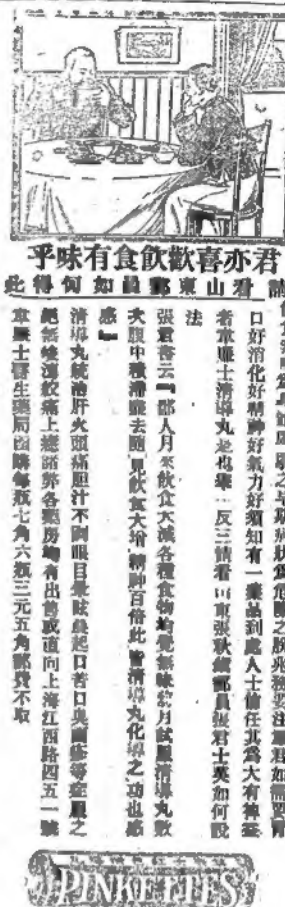 君亦喜歡飲食有味乎
請看山東郵員如何得此
之早期病狀為危險之朕兆務要注意君如需要胃
口好消化好精神好氣力好須知有一藥品到處人士信任其為大有裨益
者韋廉士清導丸是也舉一反三請看山東張秋鎮郵員張君十英如何說
法
張君書云「鄙人月來飲食大減各種食物均覺無味月試服清導丸數
次腹中積滯驟去隨見飲食大增精神百倍此皆清導丸化導之功也感
感」
清導丸統治肝火頭痛胆汁不調眼目暈眩晨起口苦口臭疹等症服之
絕無峻瀉絞痛上諸弊各藥房均有出售或直向上海江西路四五一號
韋廉士醫生藥局函購每瓶七角六瓶三元五角郵費不取
PINKETTES